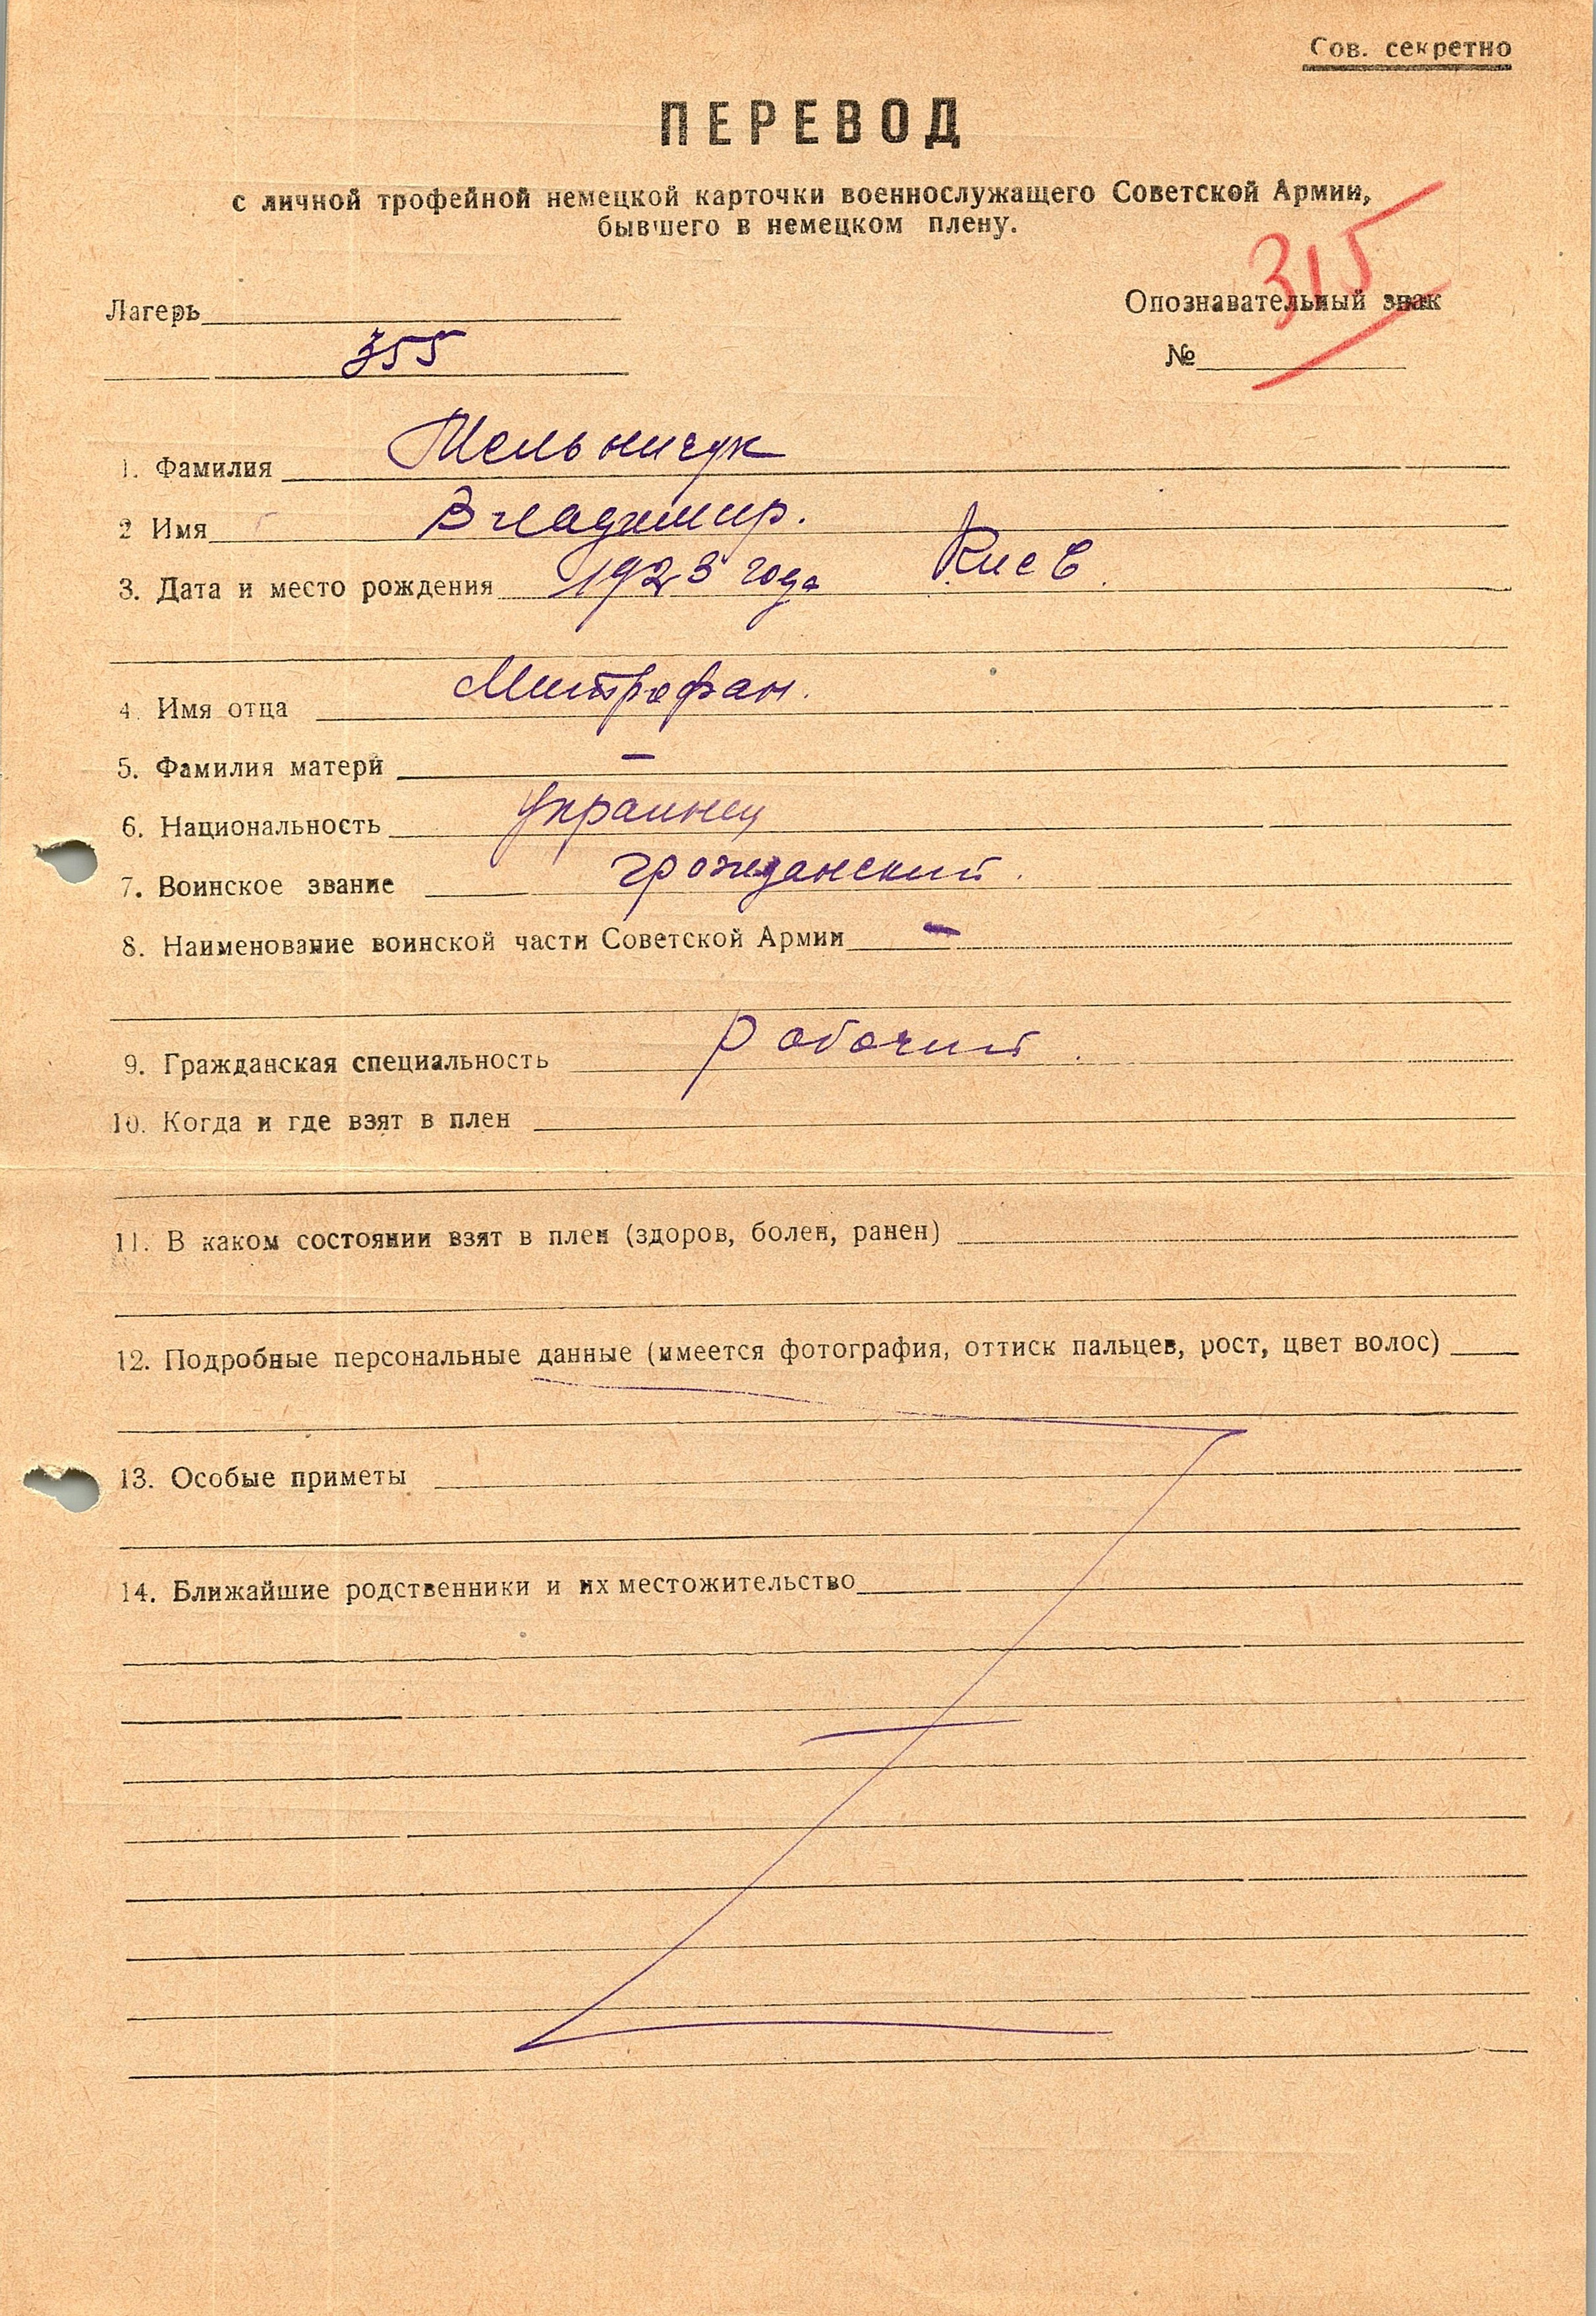 Сов. секретно
ПЕРЕВОД
с личной трофейной немецкой карточки военнослужащего Советской Армии,
бывшего в немецком плену.
315
Лагерь
Опознавательный знак
355
№
1. Фамилия Мельничук
2 Имя Владимир.
3. Дата и место рождения 1923 года Киев.
4. Имя отца Митрофан.
5. Фамилия матери —
6. Национальность Украинец
7. Воинское звание гражданский.
8. Наименование воинской части Советской Армии —
9. Гражданская специальность Рабочий.
10. Когда и где взят в плен
11. В каком состоянии взят в плен (здоров, болен, ранен)
12. Подробные персональные данные (имеется фотография, оттиск пальцев, рост, цвет волос)
13. Особые приметы
14. Ближайшие родственники и их местожительство